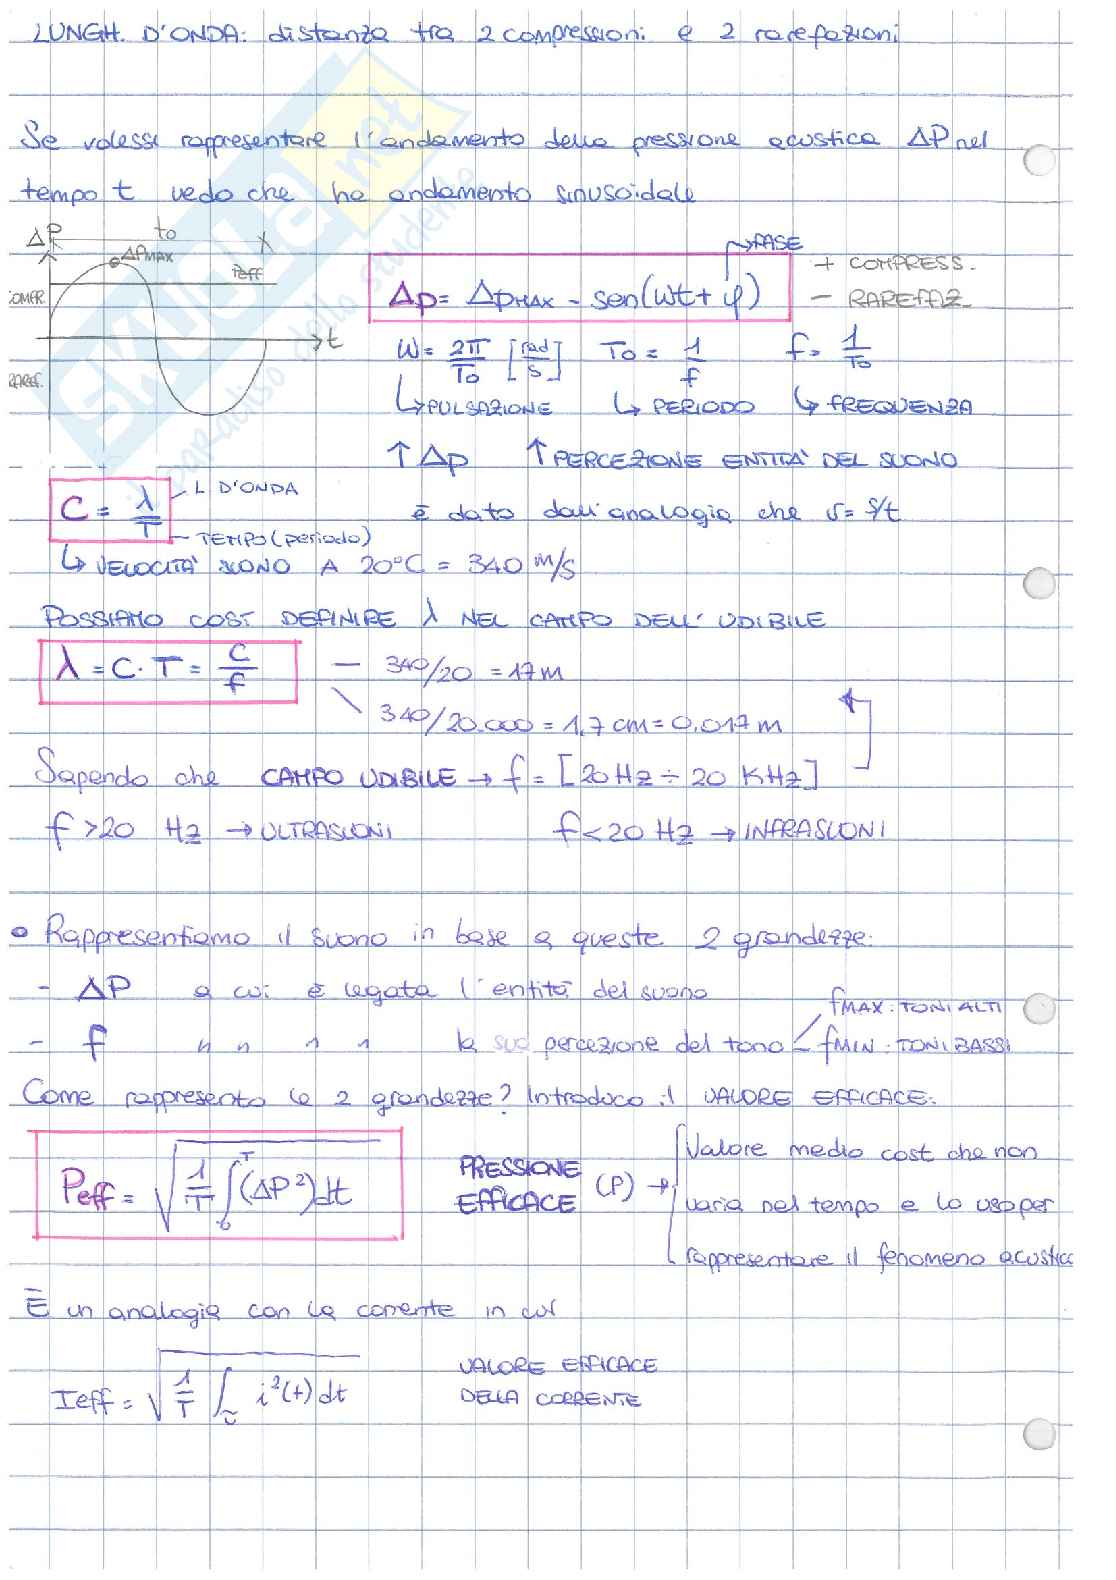 LUNGH. D'ONDA: distanza tra 2 compressioni e 2 rarefazioni
Se volessi rappresentare l'andamento della pressione acustica ΔP nel
tempo t vedo che ha andamento sinusoidale
ΔP to
ΔPMAX
Peff
COMPR.
t
RAREF.
FASE
Δp = ΔpMAX - sen(ωt + φ)
+ COMPRESS.
- RAREFAZ.
ω = 2π/To [rad/s] To = 1/f f = 1/To
↳ PULSAZIONE ↳ PERIODO ↳ FREQUENZA
↑ Δp ↑ PERCEZIONE ENTITA' DEL SUONO
C = λ/T
L D'ONDA
TEMPO (periodo)
è dato dall'analogia che v = s/t
↳ VELOCITA' SUONO A 20°C = 340 m/s
POSSIAMO COSI DEFINIRE λ NEL CAMPO DELL'UDIBILE
λ = C · T = C/f — 340/20 = 17 m
\ 340/20.000 = 1,7 cm = 0.017 m
Sapendo che CAMPO UDIBILE → f = [20 Hz ÷ 20 KHz]
f > 20 Hz → ULTRASUONI f < 20 Hz → INFRASUONI
• Rappresentiamo il suono in base a queste 2 grandezze:
- ΔP a cui è legata l'entità del suono
- f " " " " la sua percezione del tono
fMAX: TONI ALTI
fMIN: TONI BASSI
Come rappresento le 2 grandezze? Introduco il VALORE EFFICACE:
Peff = √(1/T ∫₀ᵀ (ΔP²) dt)
PRESSIONE EFFICACE (P) →
Valore medio cost che non
varia nel tempo e lo uso per
rappresentare il fenomeno acustico
È un analogia con la corrente in cui
Ieff = √(1/T ∫ i²(t) dt)
VALORE EFFICACE
DELLA CORRENTE
SKUOLA.net
il paradiso dello studente